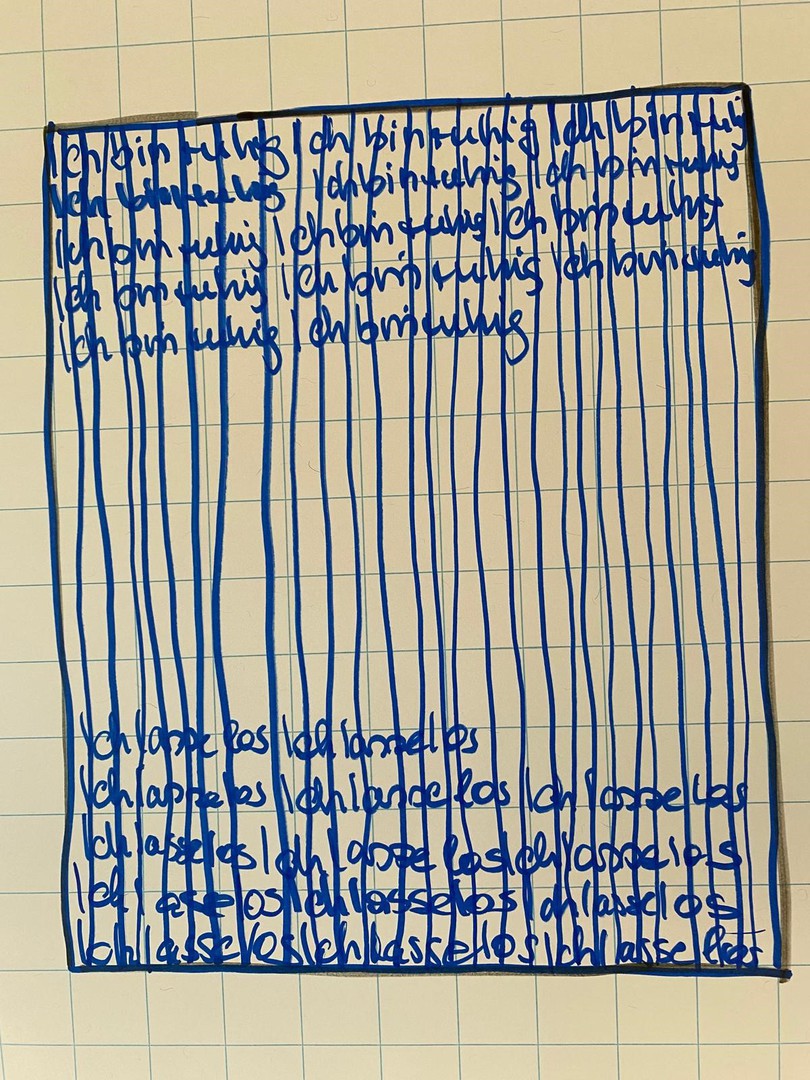 Ich bin ruhig Ich bin ruhig Ich bin ruhig
Ich bin ruhig Ich bin ruhig Ich bin ruhig
Ich bin ruhig Ich bin ruhig Ich bin ruhig
Ich bin ruhig Ich bin ruhig Ich bin ruhig
Ich bin ruhig Ich bin ruhig
Ich lasse los Ich lasse los
Ich lasse los Ich lasse los Ich lasse los
Ich lasse los Ich lasse los Ich lasse los
Ich lasse los Ich lasse los Ich lasse los
Ich lasse los Ich lasse los Ich lasse los